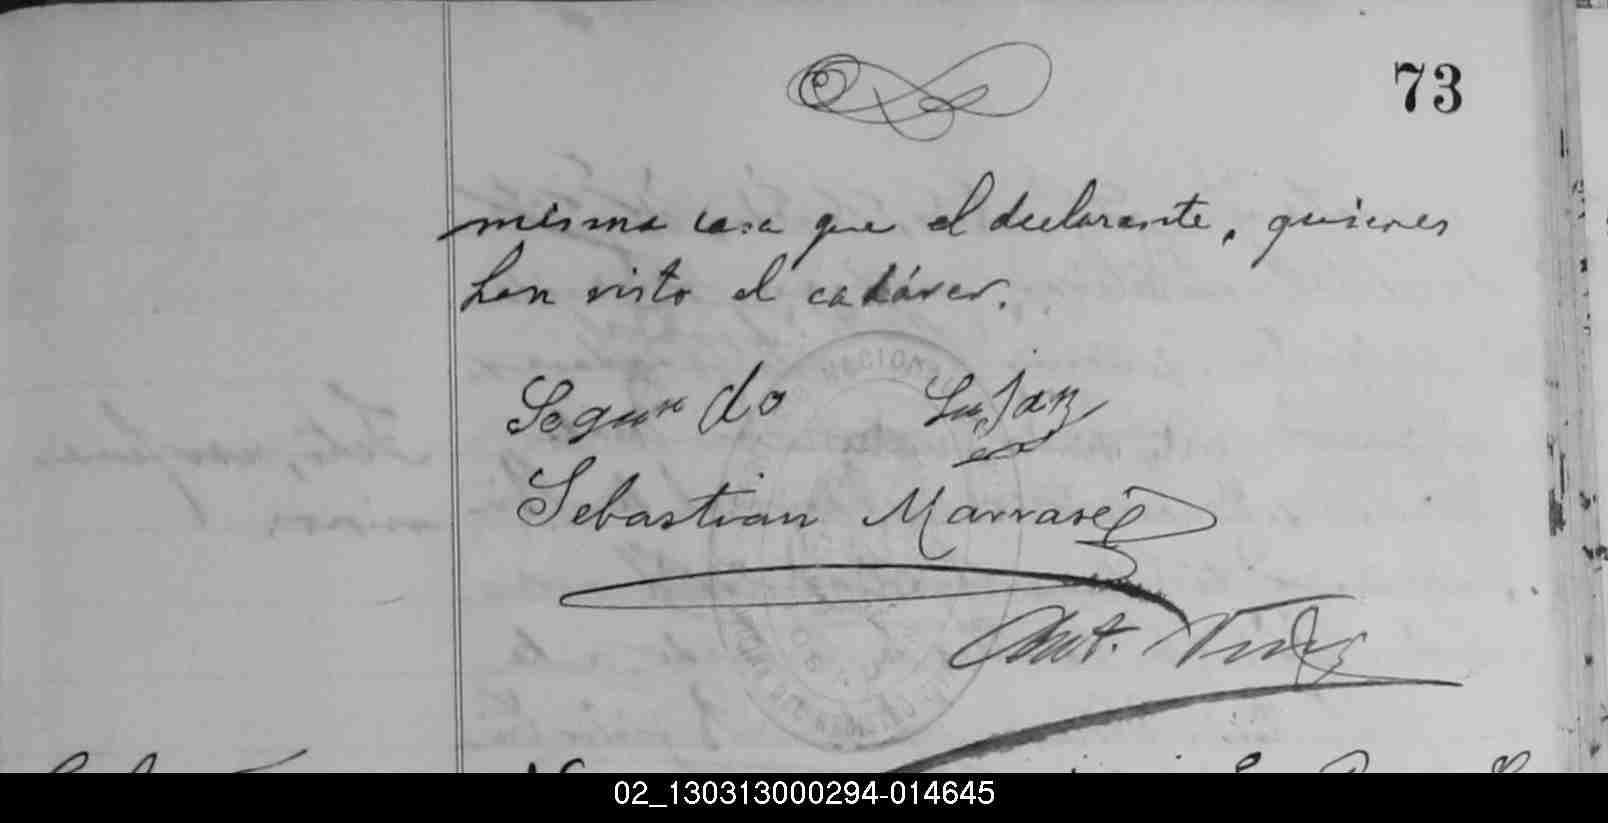 73
misma casa que el declarante, quienes
han visto el cadáver.
Segundo Luján
Sebastian Marrasé
Ant.
02_130313000294-014645